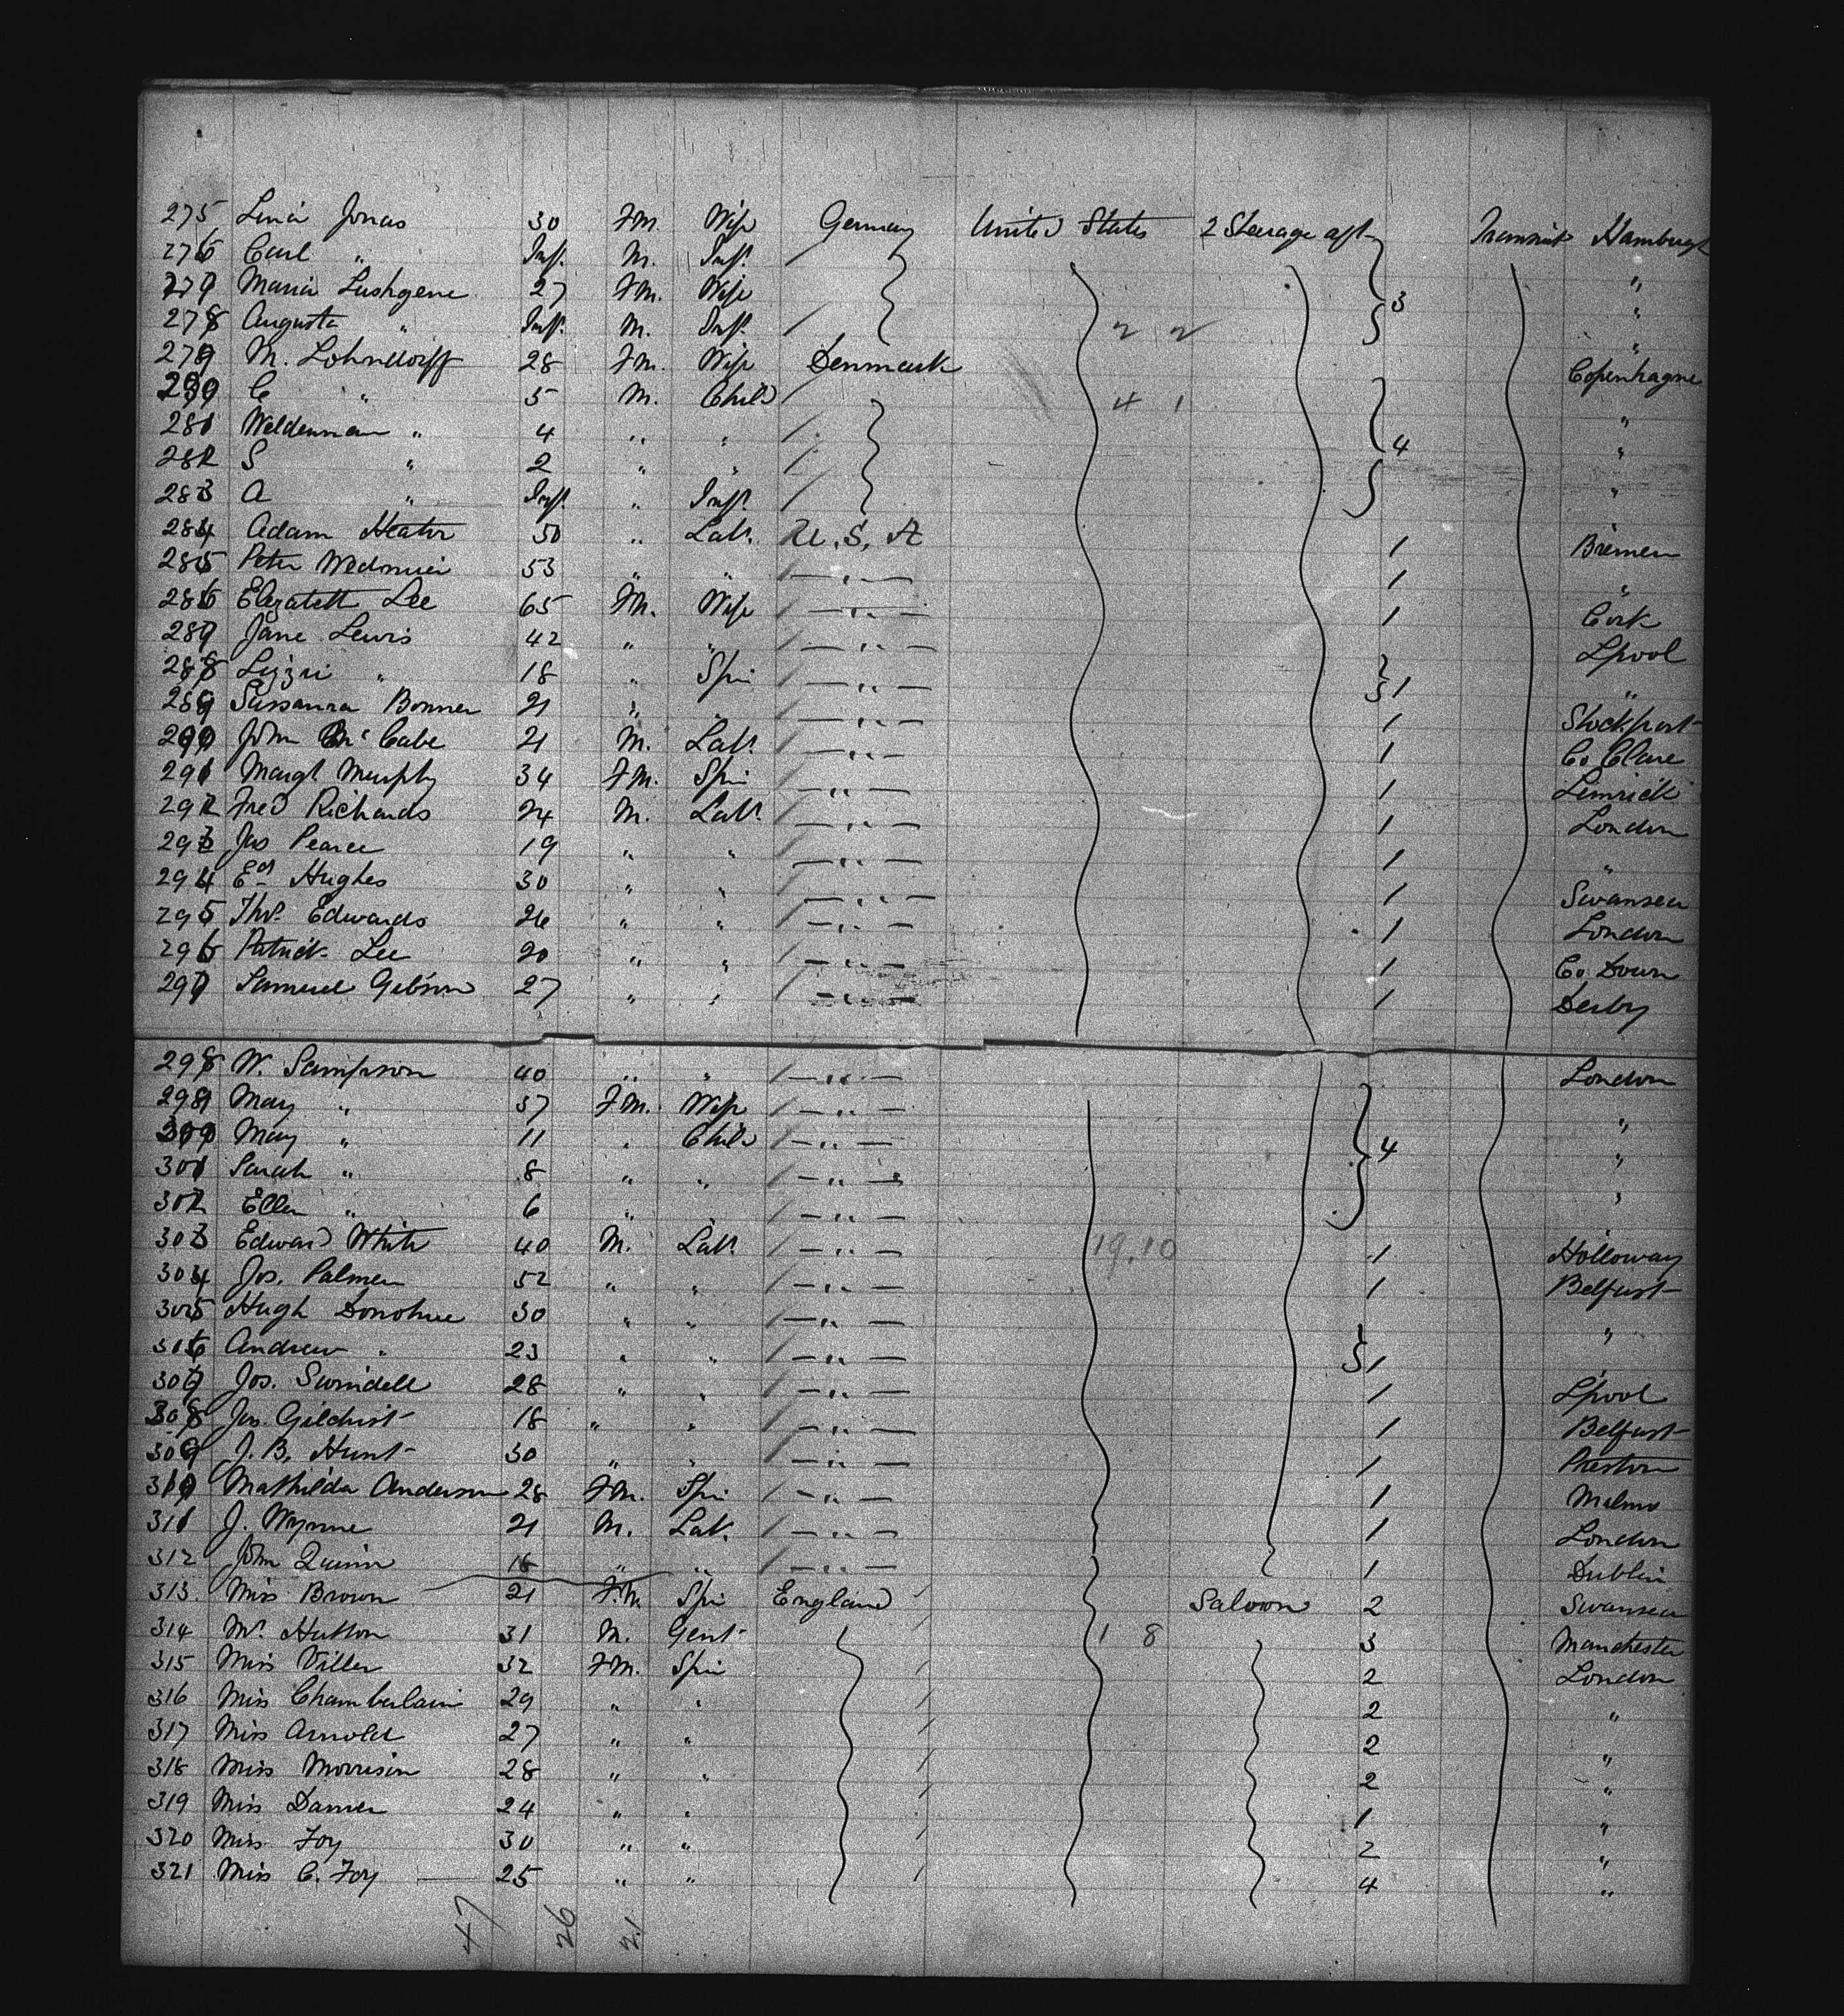 275 Lina Jonas 30 Fm. Wife Germany United States 2 Steerage aft Transit Hamburgh
276 Carl " Inft. M. Inft. "
277 Maria Lushgene 27 Fm. Wife 3 "
278 Augusta " Inft. M. Inft. 2 2 "
279 M. Lohndorff 28 Fm. Wife Denmark Copenhagne
280 C " 5 M. Child 4 1 "
281 Weldemian " 4 " " 4 "
282 S " 2 " " "
283 A " Inft. " Inft.
284 Adam Heator 50 " Labr. U.S.A 1 Bremen
285 Peter Wedmier 53 " " " 1 "
286 Elizabeth Lee 65 Fm. Wife " 1 Cork
287 Jane Lewis 42 " " " Lpool
288 Lizzie " 18 " Spin " 1 "
289 Sussanna Bonner 21 " " " 1 Stockport
290 John McCabe 21 M. Labr. " 1 Co. Clare
291 Margt Murphy 34 Fm. Spin " 1 Limrick
292 Fred Richards 24 M. Labr. " 1 London
293 Jas Pearce 19 " " " 1 "
294 Ed Hughes 30 " " " 1 Swansea
295 Thos. Edwards 26 " " " 1 London
296 Patrick Lee 20 " " " 1 Co. Down
297 Samuel Gibson 27 " " " 1 Derby
298 W. Sampson 40 " " " London
299 May " 37 Fm. Wife " "
300 May " 11 " Child " 4 "
301 Sarah " 8 " " " "
302 Ellen " 6 " " "
303 Edward White 40 M. Labr. " 19,10 1 Holloway
304 Jos. Palmer 52 " " " 1 Belfast
305 Hugh Donohue 30 " " " "
306 Andrew " 23 " " " 1
307 Jos. Swindell 28 " " " 1 L'pool
308 Jas. Gilchrist 18 " " " 1 Belfast
309 J. B. Hunt 30 " " " 1 Preston
310 Mathilda Anderson 28 Fm. Spin " 1 Malmo
311 J. Wynne 21 M. Lab. " 1 London
312 John Quinn 18 " " " 1 Dublin
313. Miss Brown 21 F.M. Spin England Saloon 2 Swansea
314 Mr. Hutton 31 M. Gent 1 8 3 Manchester
315 Miss Viller 32 Fm. Spin 2 London
316 Miss Chamberlain 29 " " 2 "
317 Miss Arnold 27 " " 2 "
318 Miss Morrison 28 " " 2 "
319 Miss Damer 24 " " 1 "
320 Miss Foy 30 " " 2 "
321 Miss C. Foy 25 " " 4 "
47 26 21